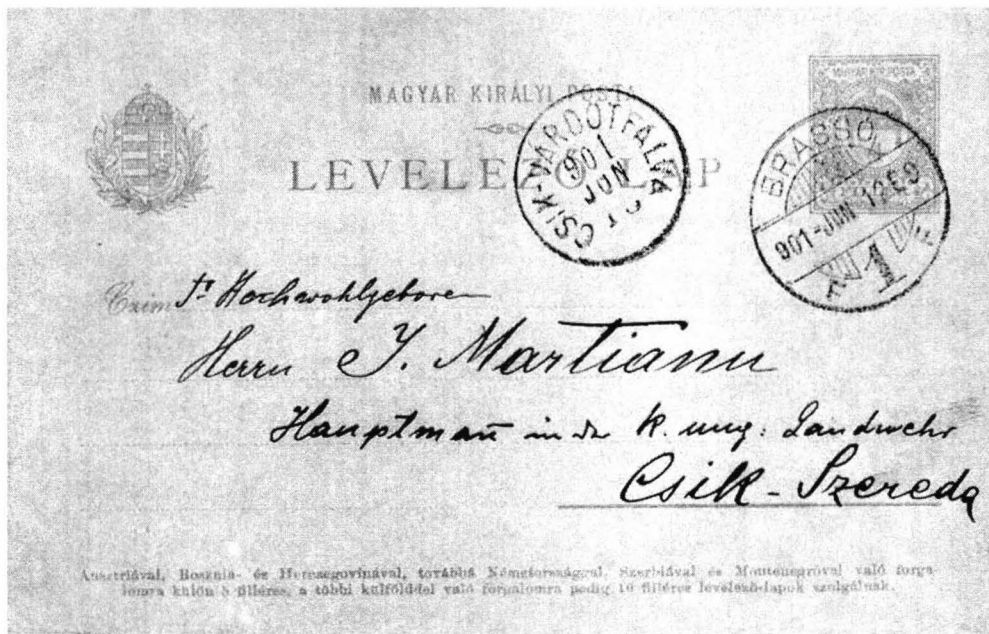 MAGYAR KIRÁLYI POSTA
LEVELEZŐ LAP
MAGYAR KIR. POSTA
CSIK-VÁRDOTFALVA
901
JUN
BRASSÓ
901-JUN 12
F 1 F
Czim Hochwohlgeboren
Herrn J. Martianu
Hauptman̅ in der k. ung: Landwehr
Csik-Szereda
Ausztriával, Bosznia- és Herczegovinával, továbbá Németországgal, Szerbiával és Montenegróval való forga-
lomra külön 5 filléres, a többi külfölddel való forgalomra pedig 10 filléres levelező-lapok szolgálnak.